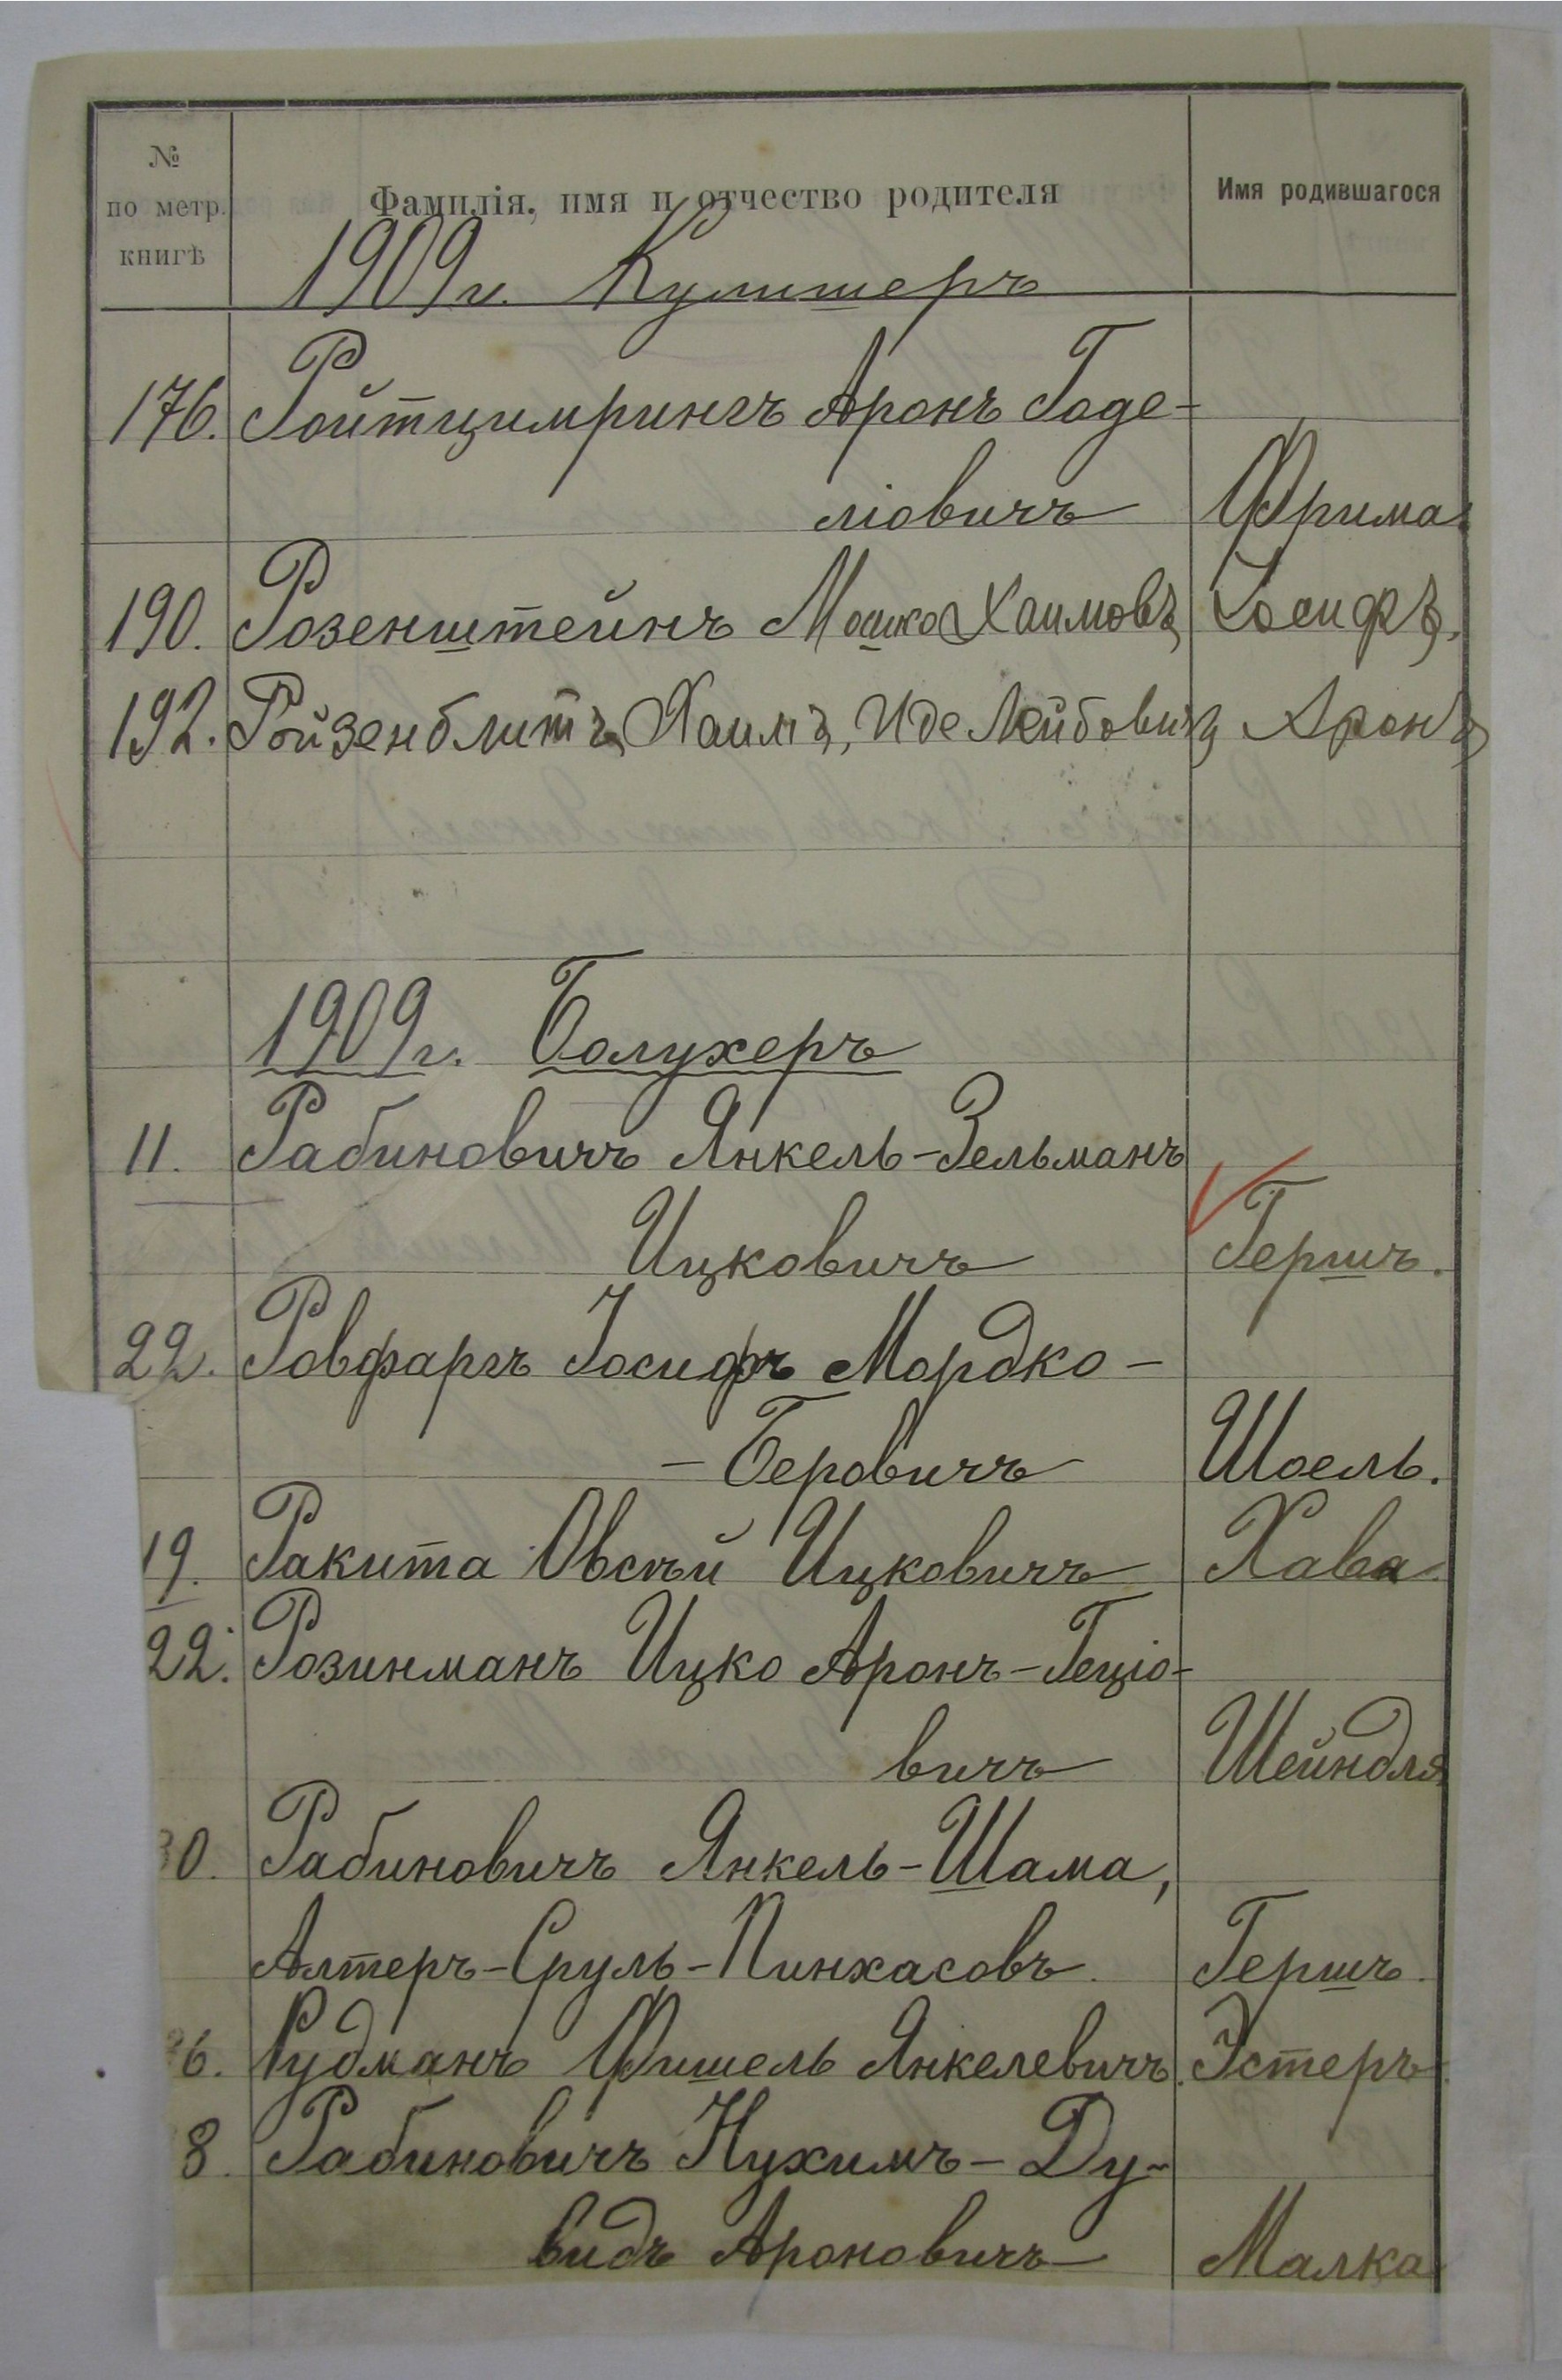 № по метр. книгѣ
Фамилія, имя и отчество родителя
Имя родившагося
1909 г. Кулишеръ
176. Ройтцимрингъ Аронъ Годе-
ліовичъ Фрима.
190. Розенштейнъ Мошко Хаимовъ Іосифъ.
192. Ройзенблитъ, Хаимъ, Иде Лейбовичъ Аронъ
1909 г. Болухеръ
11. Рабиновичъ Янкель-Зельманъ
Ицковичъ Гершъ.
22. Ровфаргъ Іосифъ Мордко-
-Беровичъ Шоель.
19. Ракита Овсѣй Ицковичъ Хава.
22. Розинманъ Ицко Аронъ-Геціо-
вичъ Шейндля
30. Рабиновичъ Янкель-Шама,
Алтеръ-Сруль-Пинхасовъ. Гершъ.
6. Рудманъ Фишель Янкелевичъ. Эстеръ.
8. Рабиновичъ Нухимъ-Ду-
видъ Ароновичъ Малка